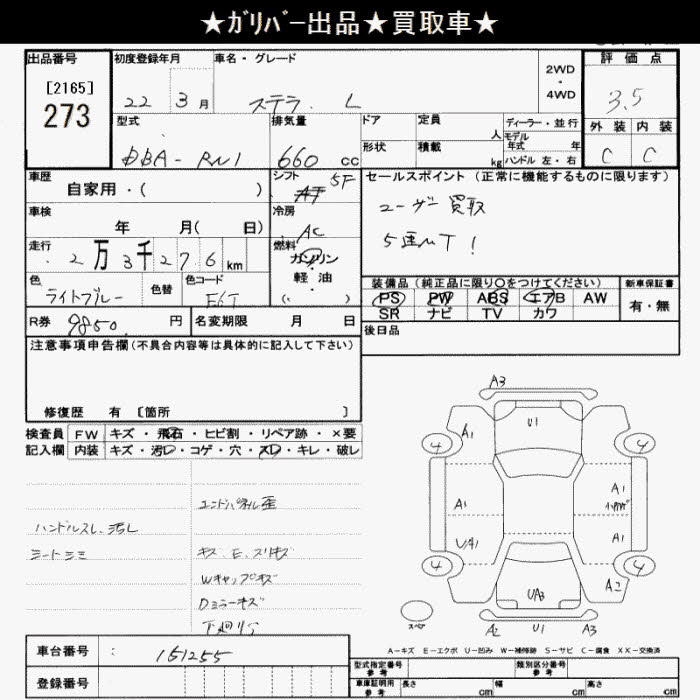 ★ｶﾞﾘﾊﾞｰ出品★買取車★
出品番号 初度登録年月 車名・グレード 2WD・4WD 評価点
[2165]
273
22 3月 ステラ L 3.5
型式 排気量 ドア 定員 人 ディーラー・並行 外装 内装
モデル年式 年
DBA-RN1 660 cc 形状 積載 kg ハンドル 左・右 C C
車歴 自家用・( ) シフト AT 5F
セールスポイント (正常に機能するものに限ります)
車検 年 月(日) 冷房 AC
ユーザー買取
5速MT!
走行 2万3千276km 燃料 ガソリン 軽・油 ( )
色 ライトブルー 色替 色コード
装備品 (純正品に限り○をつけてください) 新車保証書
PS PW ABS エアB AW 有・無
SR ナビ TV カワ
R券 9850 円 名変期限 月 日
後日品
注意事項申告欄(不具合内容等は具体的に記入して下さい)
修復歴 有 [箇所 ]
検査員 FW キズ・飛石・ヒビ割・リペア跡・×要
記入欄 内装 キズ・汚レ・コゲ・穴・スレ・キレ・破レ
エンドパネル歪
ハンドルスレ、汚レ
シートシミ
キズ、E、スリキズ
Wキャップキズ
Dミラーキズ
下廻リサ
A3
U1
A1 A1
4 4
A1 A1
U/A1 A1
4 4
UA3 A2
スペア
A2 U1 A3
A-キズ E-エクボ U-凹み W-補修跡 S-サビ C-腐食 XX-交換済
車台番号 : 151255
登録番号
型式指定番号 参考 類別区分番号 参考
車庫証明用 参考 長さ cm 幅 cm 高さ cm